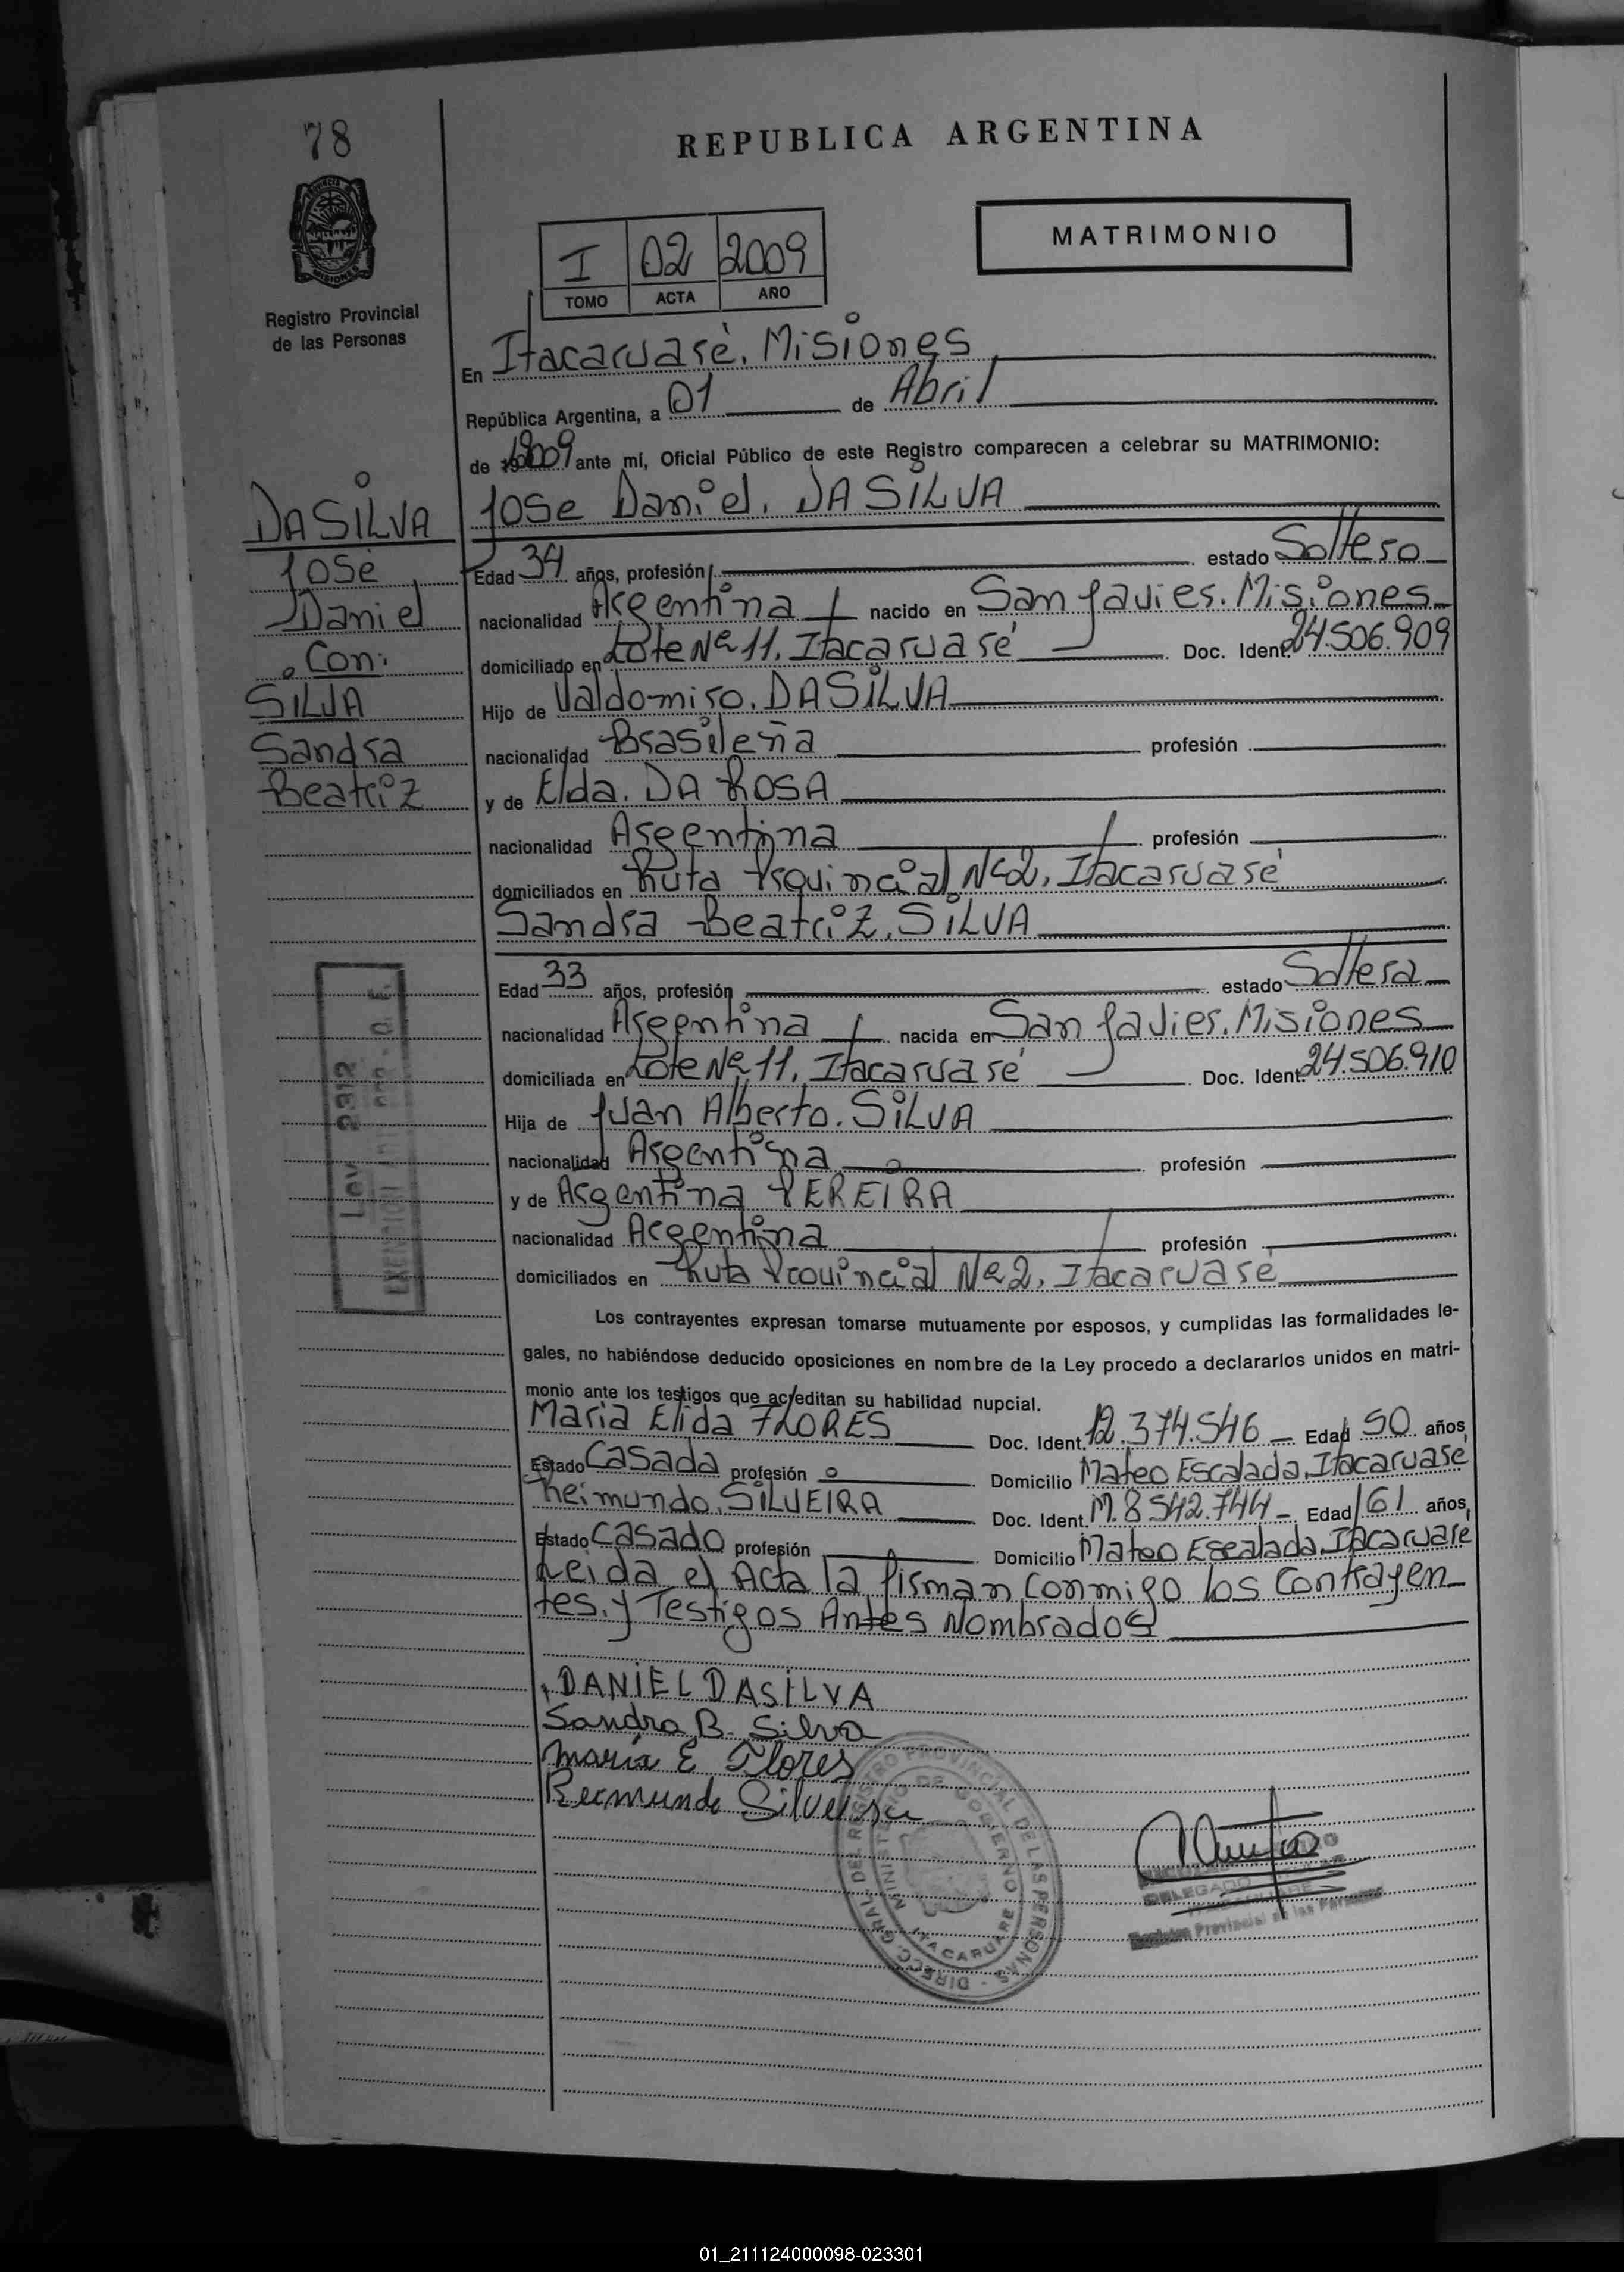 78
REPUBLICA ARGENTINA
MATRIMONIO
I 02 2009
TOMO ACTA AÑO
Registro Provincial
de las Personas
En Itacaruaré, Misiones
República Argentina, a 01 de Abril
de 2009 ante mí, Oficial Público de este Registro comparecen a celebrar su MATRIMONIO:
DASILVA
José
Daniel
Con:
SILVA
Sandra
Beatriz
Jose Daniel. DASILVA
Edad 34 años, profesión estado Soltero
nacionalidad Argentina nacido en San Javier. Misiones
domiciliado en Lote Nº 11, Itacaruaré Doc. Ident. 24.506.909
Hijo de Valdomiro. DASILVA
nacionalidad Brasileña profesión
y de Elda. DA ROSA
nacionalidad Argentina profesión
domiciliados en Ruta Provincial Nº 2, Itacaruaré
Sandra Beatriz. SILVA
Edad 33 años, profesión estado Soltera
nacionalidad Argentina nacida en San Javier. Misiones
domiciliada en Lote Nº 11, Itacaruaré Doc. Ident. 24.506.910
Hija de Juan Alberto. SILVA
nacionalidad Argentina profesión
y de Argentina PEREIRA
nacionalidad Argentina profesión
domiciliados en Ruta Provincial Nº 2, Itacaruaré
Ley 2312
Los contrayentes expresan tomarse mutuamente por esposos, y cumplidas las formalidades le-
gales, no habiéndose deducido oposiciones en nombre de la Ley procedo a declararlos unidos en matri-
monio ante los testigos que acreditan su habilidad nupcial.
Maria Elida FLORES Doc. Ident. 12.374.546 Edad 50 años,
Estado Casada profesión Domicilio Mateo Escalada, Itacaruaré
Reimundo. SILVEIRA Doc. Ident. M. 8.542.744 Edad 61 años,
Estado Casado profesión Domicilio Mateo Escalada, Itacaruaré
Leida el Acta la firman conmigo los contrayen
tes. y Testigos Antes Nombrados
DANIEL DASILVA
Sandra B. Silva
María E Flores
Reimundo Silveira
DIRECC. GRAL. DEL REGISTRO PROVINCIAL DE LAS PERSONAS
MINISTERIO DE GOBIERNO
ITACARUARE
DELEGADO
Registro Provincial de las Personas
01_211124000098-023301